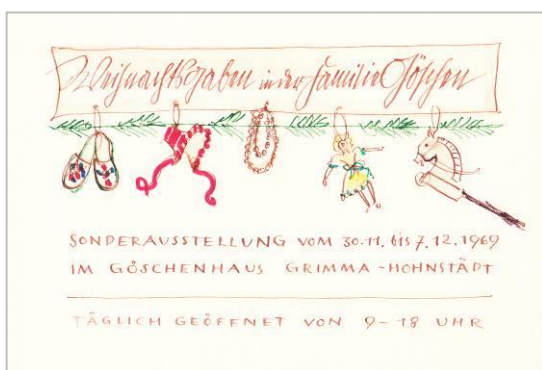 Weihnachtsgaben in der Familie Göschen
SONDERAUSSTELLUNG VOM 30.11. bis 7.12.1969
IM GÖSCHENHAUS GRIMMA-HOHNSTÄDT
TÄGLICH GEÖFFNET VON 9-18 UHR